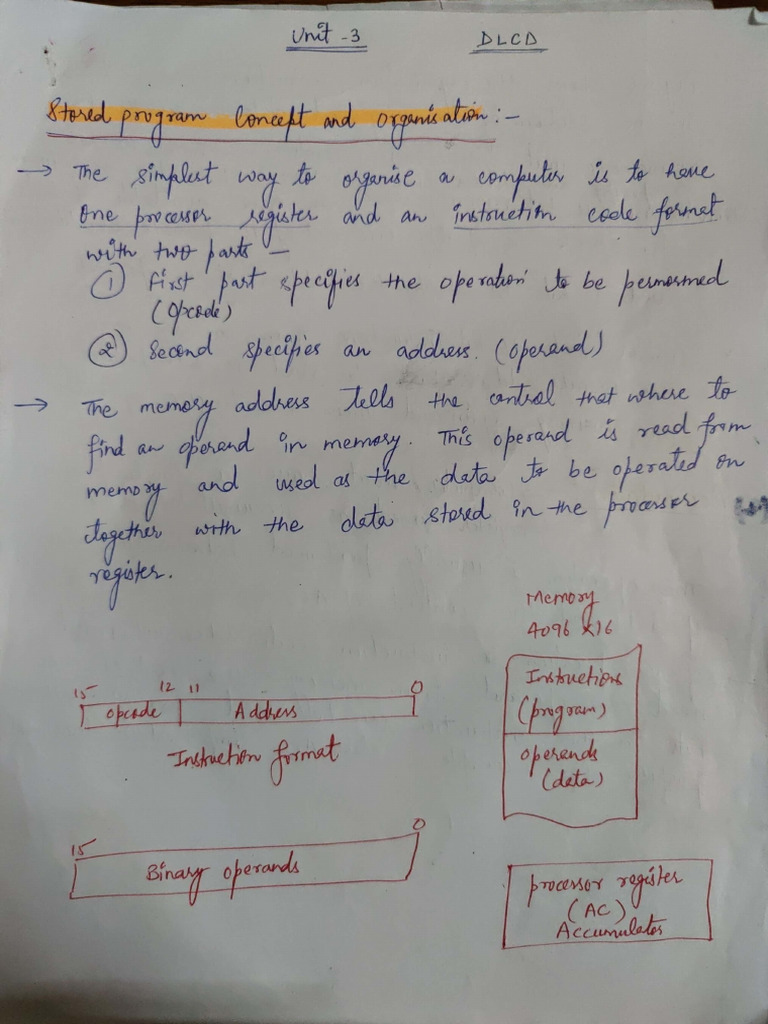 Unit - 3 DLCD
Stored program Concept and Organisation :-
→ The simplest way to organise a computer is to have
one processor register and an instruction code format
with two parts —
① First part specifies the operation to be permormed
(Opcode)
② Second specifies an address. (operand)
→ The memory address tells the control that where to
find an operand in memory. This operand is read from
memory and used as the data to be operated on
together with the data stored in the processor
register.
Memory
4096 x 16
Instructions
(program)
operands
(data)
15 12 11 0
opcode Address
Instruction format
15 0
Binary operands
processor register
(AC)
Accumulator